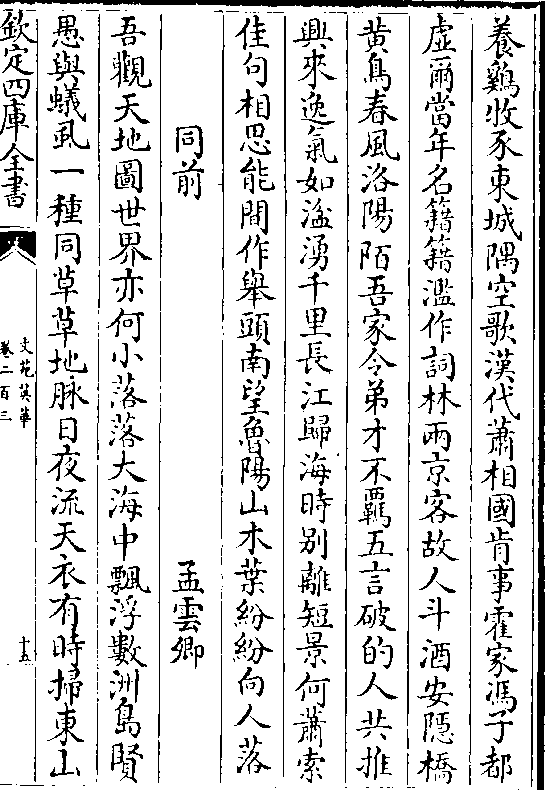 養雞牧豕東城隅空歌漢代蕭相國肯事霍家馮子都
虛爾當年名籍籍濫作詞林兩京客故人斗酒安隠橋
黄鳥春風洛陽陌吾家令弟才不羈五言破的人共推
興來逸氣如濤湧千里長江歸海時别離短景何蕭索
佳句相思能間作舉頭南望魯陽山木葉紛紛向人落
同前 孟雲卿
吾觀天地圖世界亦何小落落大海中飄浮數洲島賢
愚與蟻虱一種同草草地脉日夜流天衣有時掃東山
欽定四庫全書
文苑英華
卷二百三
十五